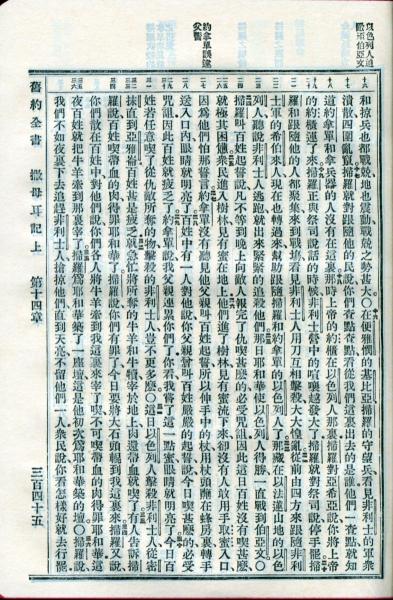 以色列人追
殺至伯亞文
約拿單誤違
父誓
和掠兵也都戰兢地也震動戰兢之勢甚大○在便雅憫的基比亞掃羅的守望兵看見非利士的軍衆
潰散四圍亂竄掃羅就對跟隨他的民說你們查點查點看從我們這裏出去的是誰他們一查點就知
道約拿單和拿兵器的人沒有在這裏那時上帝的約櫃在以色列人那裏掃羅對亞希亞說你將上帝
的約櫃運了來掃羅正與祭司說話的時候非利士營中的喧嚷越發大了掃羅就對祭司說停手罷掃
羅和跟隨他的人都聚集來到戰場看見非利士人用刀互相擊殺大大惶亂從前由四方來跟隨非利
士軍的希伯來人現在也轉過來幫助跟隨掃羅和約拿單的以色列人了那藏在以法蓮山地的以色
列人聽說非利士人逃跑就出來緊緊的直殺他們那日耶和華使以色列人得勝一直戰到伯亞文○
掃羅叫百姓起誓說凡不等到晚上向敵人報完了仇喫甚麼的必受咒詛因此這日百姓沒有喫甚麼
就極其困憊衆民進入樹林見有蜜在地上他們進了樹林見有蜜流下來卻沒有人敢用手取蜜入口
因為他們怕那誓言約拿單沒有聽見他父親叫百姓起誓所以伸手中的杖用杖頭蘸在蜂房裏轉手
送入口內眼睛就明亮了百姓中有一人對他說你父親曾叫百姓嚴嚴的起誓說今日喫甚麼的必受
咒詛因此百姓就疲乏了約拿單說我父親連累你們了你看我嘗了這一點蜜眼睛就明亮了今日百
姓若任意喫了從仇敵所奪的物擊殺的非利士人豈不更多麼○這日以色列人擊殺非利士人從密
抹直到亞雅崙百姓甚是疲乏就急忙將所奪的牛羊和牛犢宰於地上肉還帶血就喫了有人告訴掃
羅說百姓喫帶血的肉得罪耶和華了掃羅說你們有罪了今日要將大石頭輥到我這裏來掃羅又說
你們散在百姓中對他們說你們各人將牛羊牽到我這裏來宰了喫不可喫帶血的肉得罪耶和華這
夜百姓就把牛羊牽到那裏宰了掃羅為耶和華築了一座壇這是他初次為耶和華築的壇○掃羅說
我們不如夜裏下去追趕非利士人搶掠他們直到天亮不留他們一人衆民說你看怎樣好就去行罷
舊約全書 撒母耳記上 第十四章 三百四十五